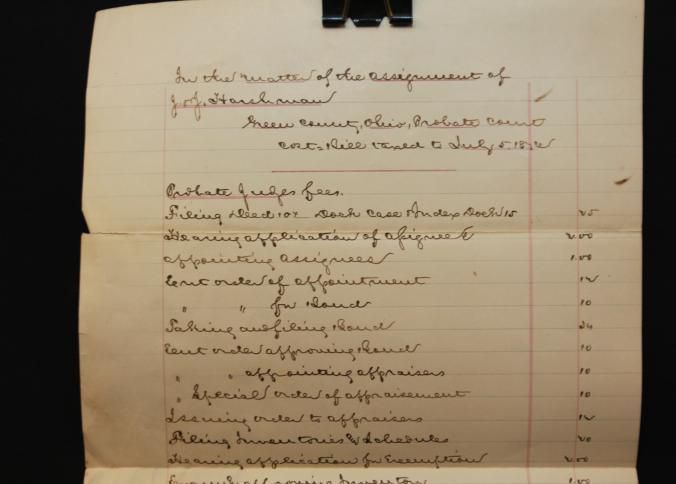 In the matter of the assignment of
J & J. Harshman
Green County, Ohio, Probate Court
Cost-Bill taxed to July 5. 187
Probate Judges fees.
Filing Deed 10 Dock case & Index Dock 15 25
Hearing application of assignee 2.00
appointing assignees 1.00
Ent order of appointment 12
" " for Bond 10
Taking and filing Bond 24
Ent order approving Bond 10
" " appointing appraisers 10
" Special order of appraisement 10
Issuing order to appraisers 12
Filing Inventories & Schedules 20
Hearing application for Exemption 2.00
approving Inventory 1.00